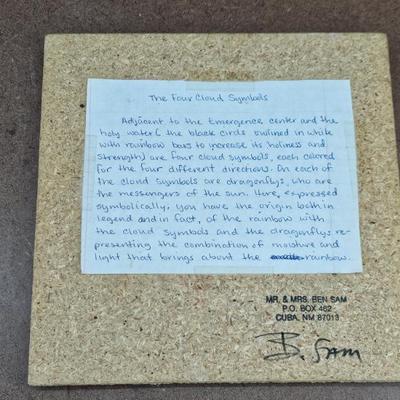 The Four Cloud Symbols
Adjacent to the Emergence center and the
holy water (the black circle outlined in white
with rainbow bars to increase its holiness and
strength) are four cloud symbols, each colored
for the four different directions. On each of
the cloud symbols are dragonflys, who are
the messengers of the sun. Here, expressed
symbolically, you have the origin both in
legend and in fact, of the rainbow with
the cloud symbols and the dragonflys re-
presenting the combination of moisture and
light that brings about the rainbow.
MR. & MRS. BEN SAM
P.O. BOX 462
CUBA, NM 87013
B. Sam